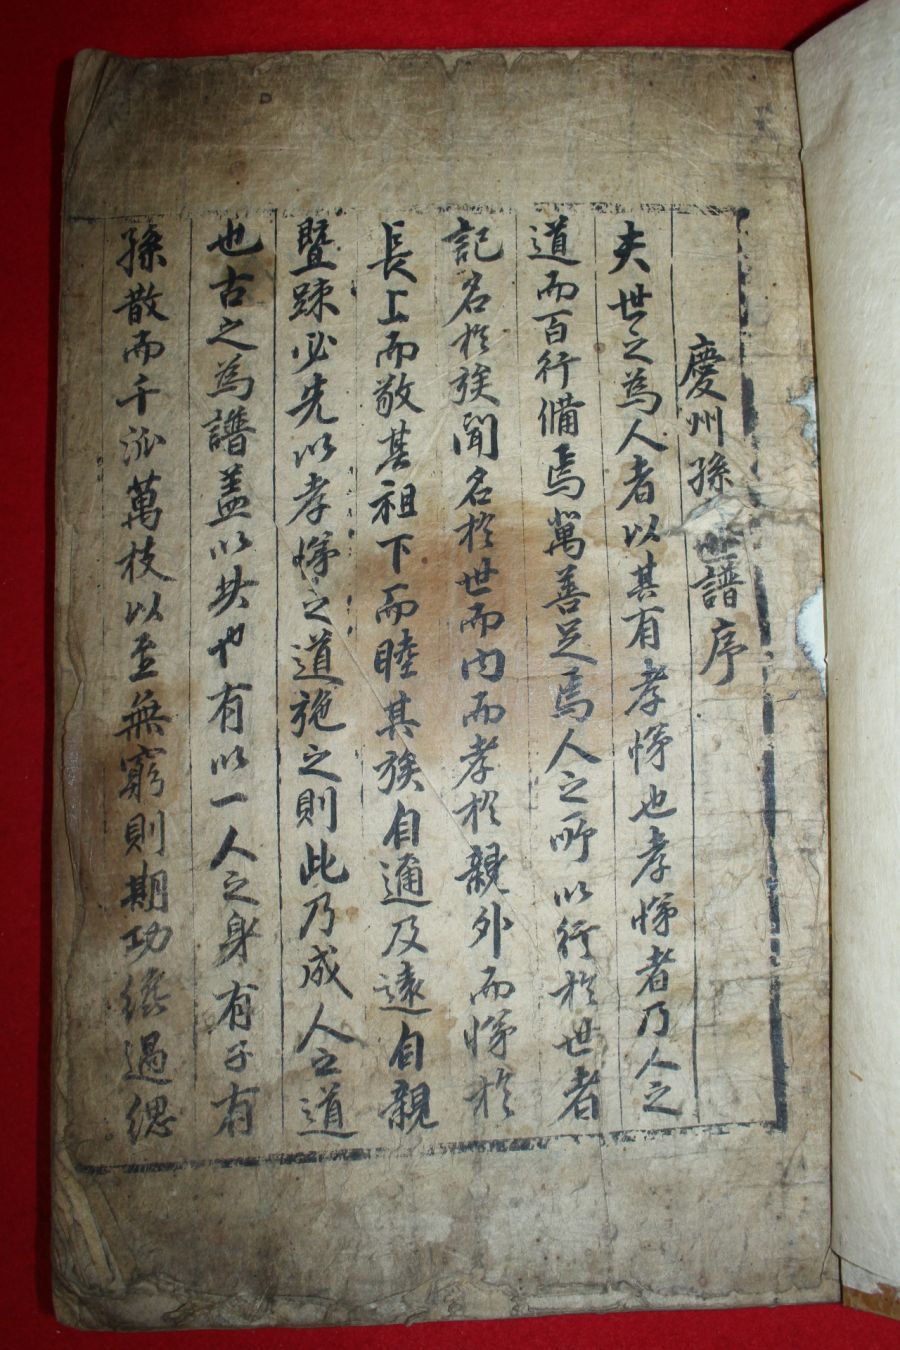 慶州孫世譜序
夫世之為人者以其有孝悌也孝悌者乃人之
道而百行備焉萬善足焉人之所以行於世者
記名於族聞名於世而內而孝於親外而悌於
長上而敬其祖下而睦其族自邇及遠自親
暨踈必先以孝悌之道施之則此乃成人之道
也古之為譜盖以共也有以一人之身有子有
孫散而千派萬枝以至無窮則期功緦過緦